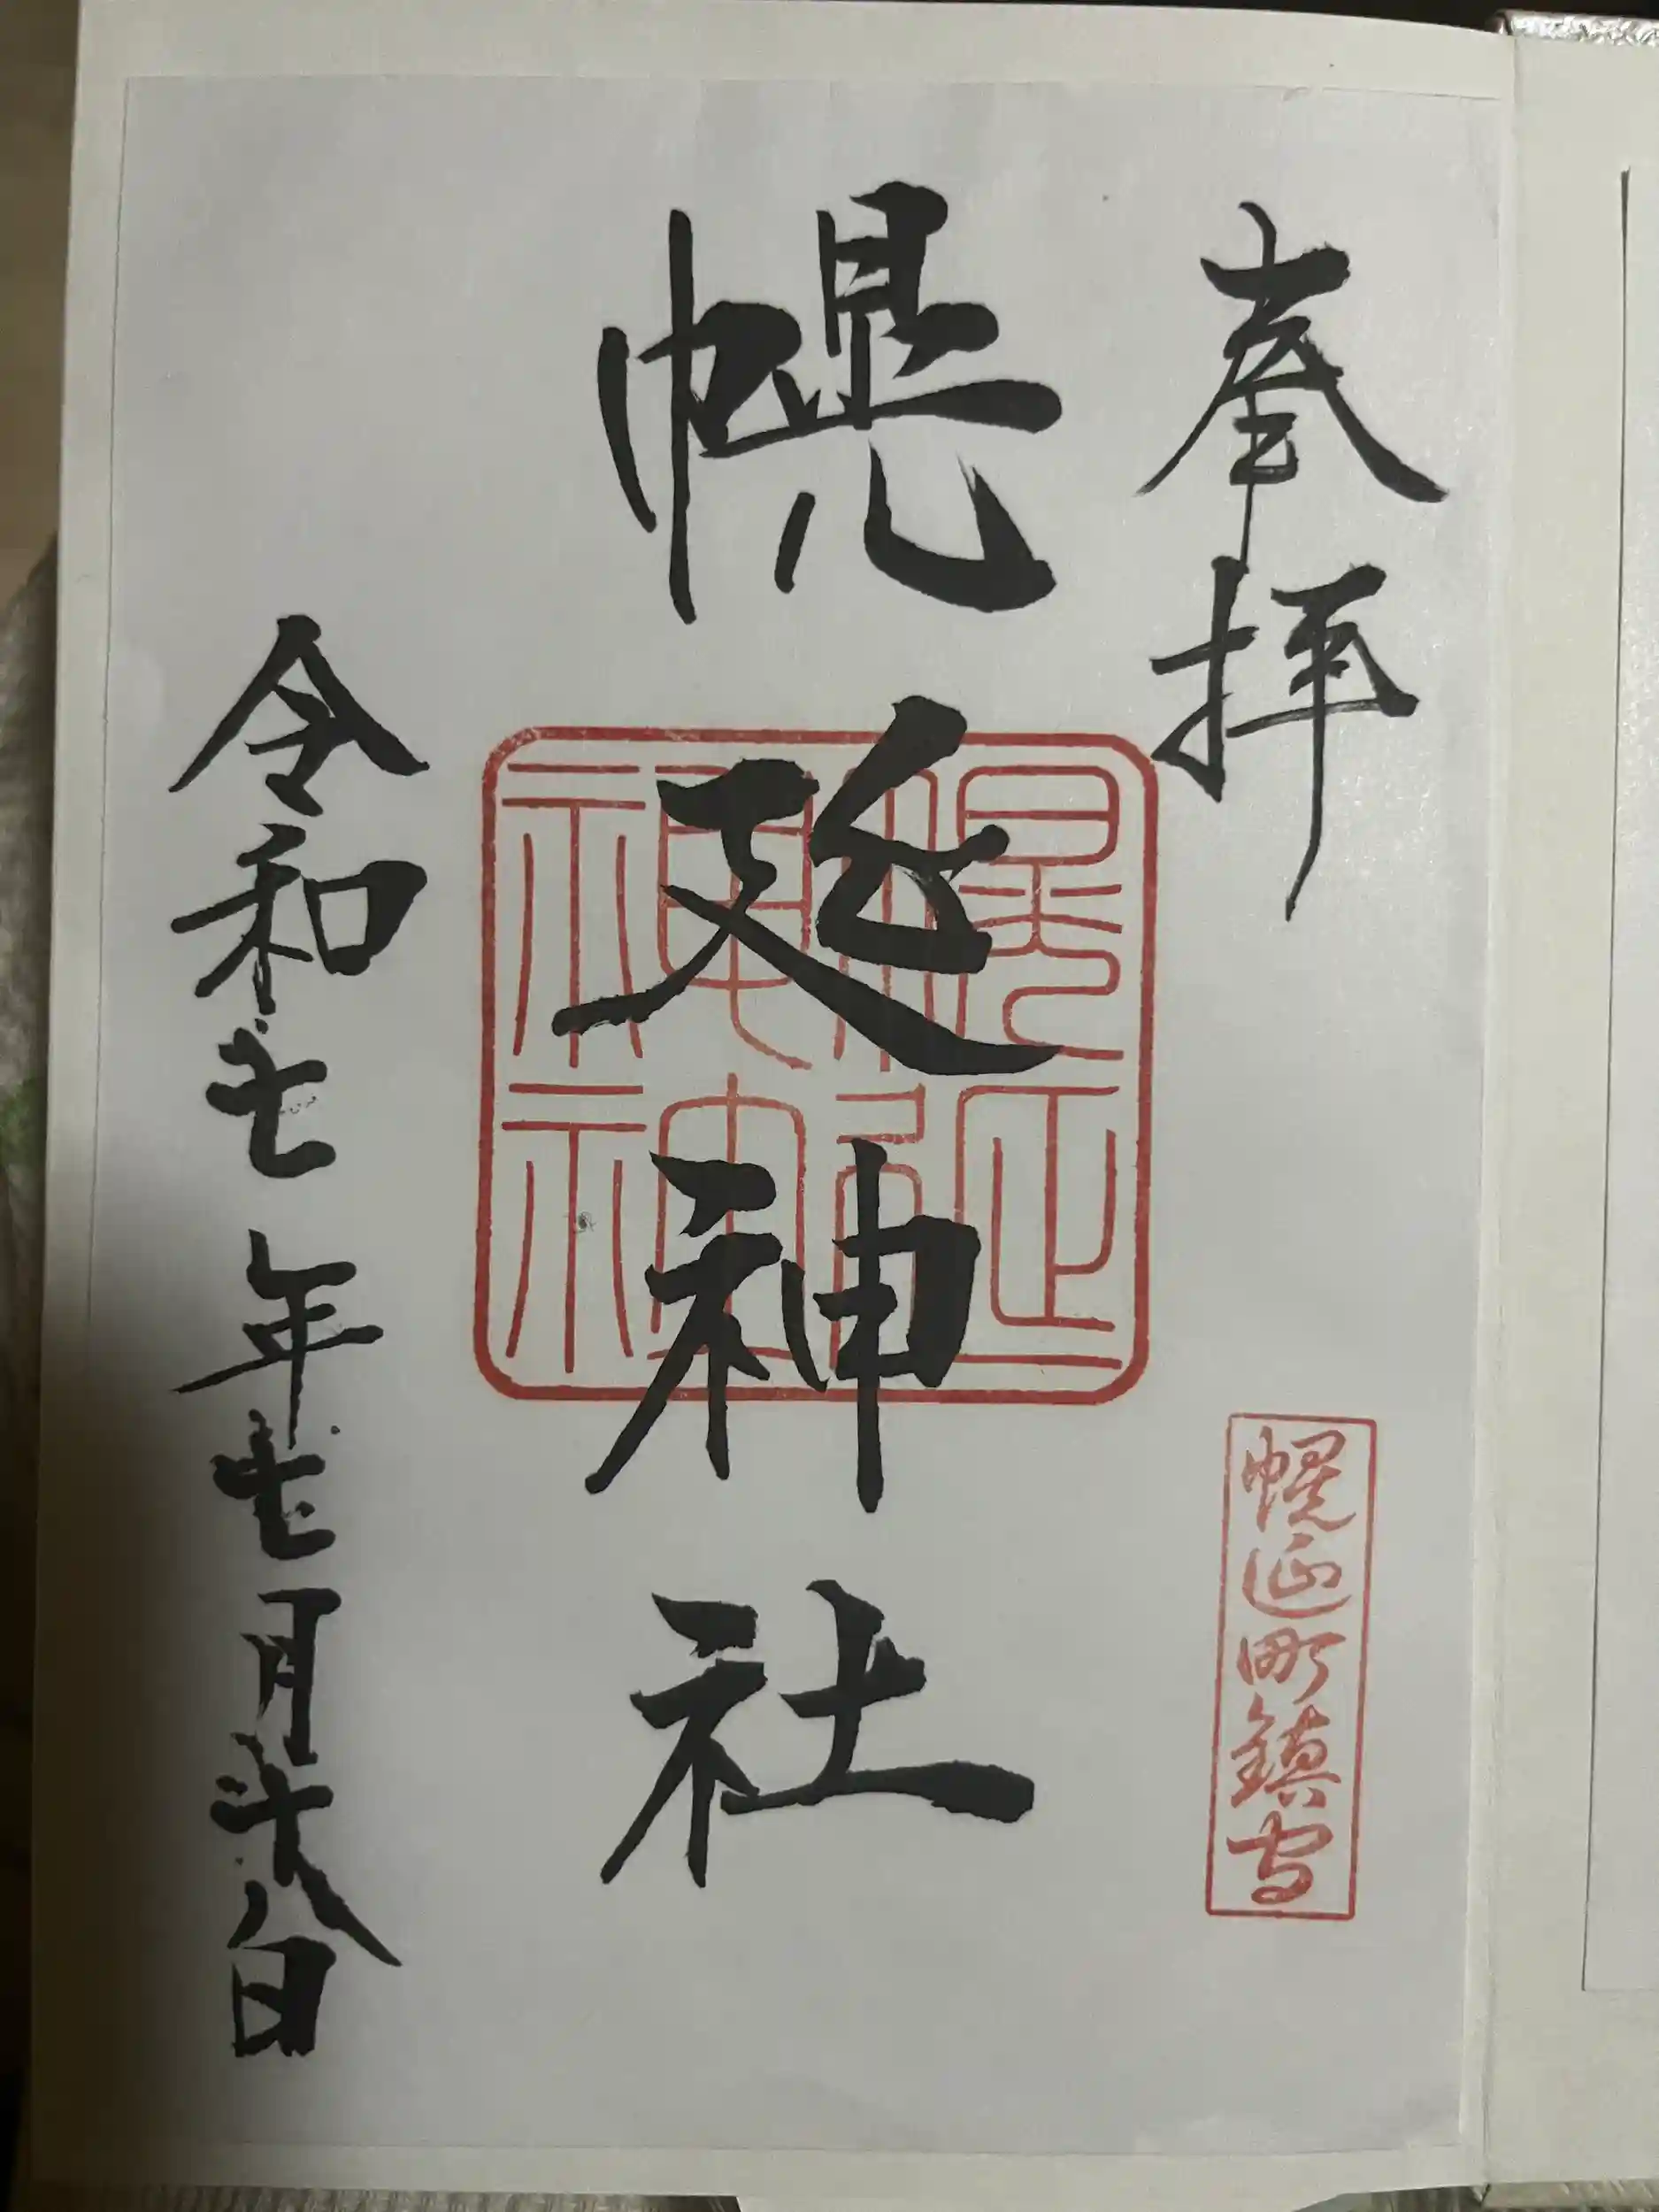 奉拝
幌延町鎮守
幌延神社
幌延神社
令和七年七月十八日